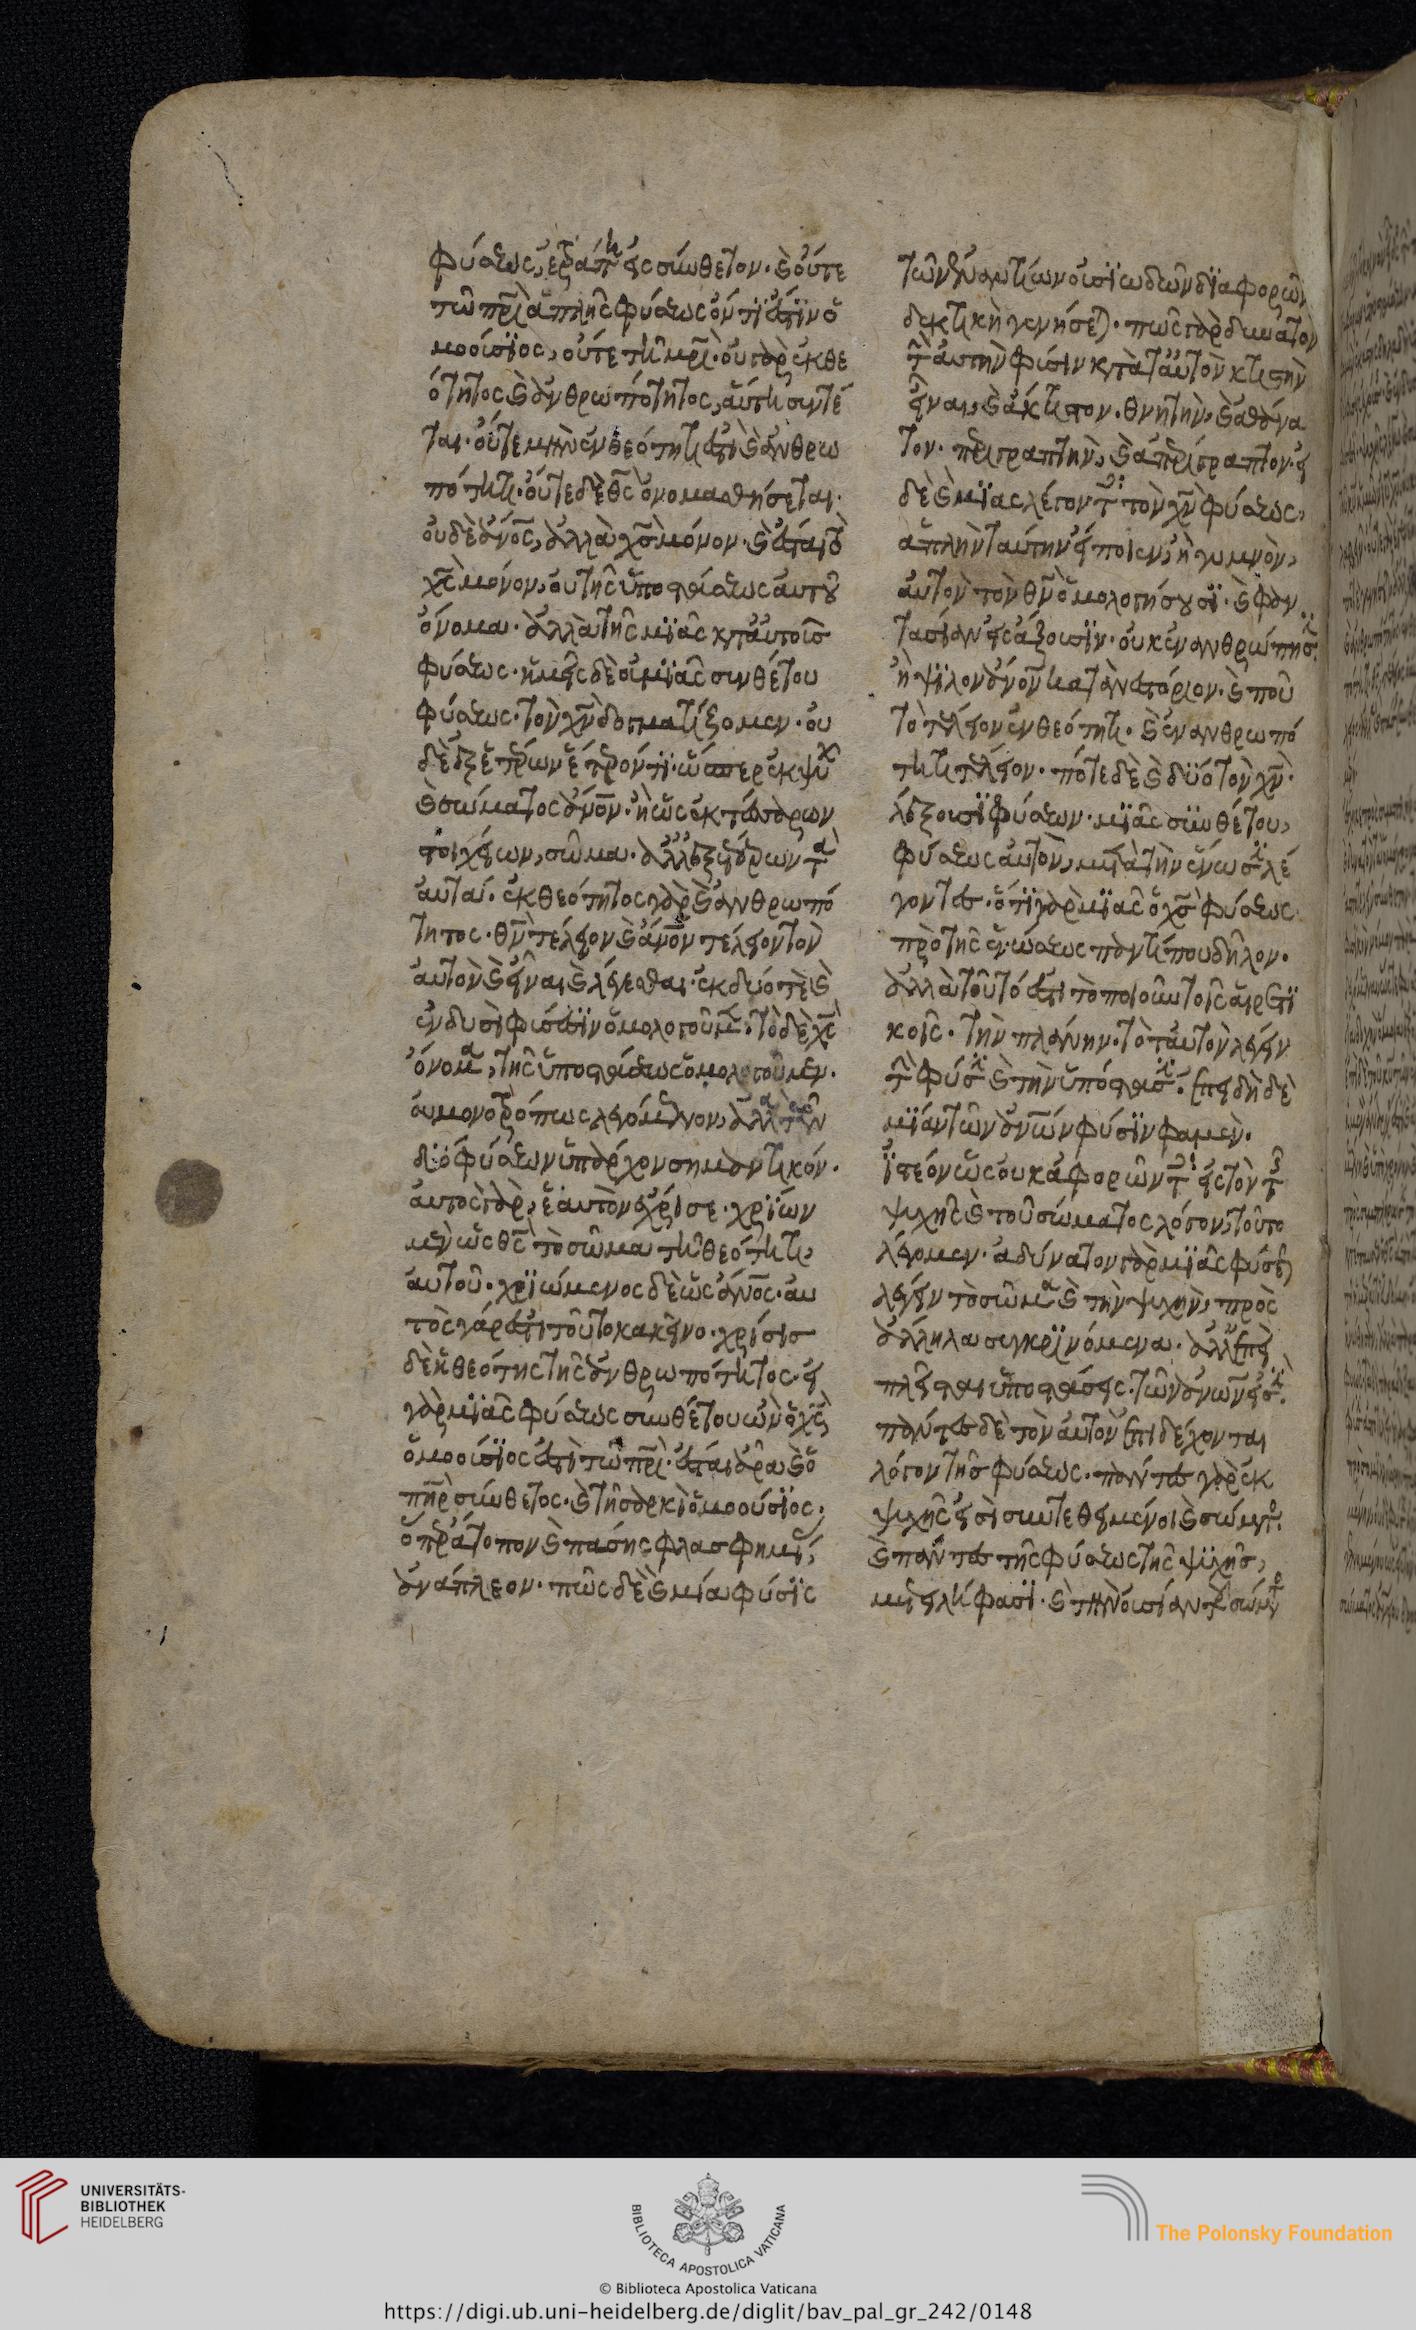 φύσεως, ἐτράπη εἰς σύνθετον· καὶ οὔτε
τῶ πρὶ ἁπλῆς φύσεως ὄντι ἐστὶν ὁ
μοούσιος, οὔτε τῆ μρὶ· οὐ γὰρ ἐκ θε
ότητος καὶ ἀνθρωπότητος, αὕτη συντέ
ται· οὔτε μὴν ἐν θεότητι ἐστὶ καὶ ἀνθρω
πότητι· οὔτε δὲ θς ὀνομασθήσεται·
οὐδὲ ἄνος, ἀλλὰ χς μόνον· καὶ ἔσται τὸ
χς μόνον, οὐ τῆς ὑποστάσεως αὐτοῦ
ὄνομα· ἀλλὰ τῆς μιᾶς κατ' αὐτοῖς
φύσεως· ἡμεῖς δὲ οὐ μιᾶς συνθέτου
φύσεως· τὸν χν δογματίζομεν· οὐ
δὲ ἐξ ἑτέρων ἕτερόν τι· ὥσπερ ἐκ ψυχῆς
καὶ σώματος ἄνον· ἢ ὡς ἐκ τεσσάρων
στοιχείων, σῶμα· ἀλλ' ἐξ ἑτέρων τὰ
αὐτά· ἐκ θεότητος γὰρ καὶ ἀνθρωπό
τητος· θν τέλειον καὶ ἄνον τέλειον τὸν
αὐτὸν καὶ εἶναι καὶ λέγεσθαι· ἐκ δύο τὲ καὶ
ἐν δυσὶ φύσεσιν ὁμολογοῦμεν· τὸ δὲ χς
ὄνομα, τῆς ὑποστάσεως ὁμολογοῦμεν·
οὐ μονοτρόπως λεγόμενον, ἀλλὰ τῶν
δύο φύσεων ὑπάρχον σημαντικόν·
αὐτὸς γὰρ, ἑαυτὸν ἔχρισε· χρίων
μὲν ὡς θς τὸ σῶμα τῆ θεότητι,
αὐτοῦ· χριώμενος δὲ ὡς ἄνος· αὐ
τὸς γάρ ἐστι τοῦτο κἀκεῖνο· χρίσις
δὲ ἡ θεότης τῆς ἀνθρωπότητος· εἰ
γὰρ μιᾶς φύσεως συνθέτου ὢν ὁ χς
ὁμοούσιος ἐστὶ τῶ πρὶ· ἔσται ἄρα καὶ ὁ
πὴρ σύνθετος· καὶ τῆ σαρκὶ ὁμοούσιος,
ὅπερ ἄτοπον καὶ πάσης βλασφημίας
ἀνάπλεον· πῶς δὲ καὶ μία φύσις
τῶν ἐναντίων οὐσιωδῶν διαφορῶν
δεκτικὴ γενήσεται· πῶς γὰρ δυνατὸν
τὴν αὐτὴν φύσιν κατὰ ταὐτὸν κτιστὴν
εἶναι, καὶ ἄκτιστον· θνητὴν, καὶ ἀθάνα
τον· περιγραπτὴν, καὶ ἀπερίγραπτον· εἰ
δὲ καὶ μιᾶς λέγοντες τὸν χν φύσεως,
ἁπλὴν ταύτην εἴποιεν, ἢ γυμνὸν,
αὐτὸν τὸν θν ὁμολογήσουσι· καὶ φαν
τασίαν εἰσάξουσιν· οὐκ ἐνανθρώπησιν
ἢ ψιλὸν ἄνον κατὰ νεστόριον· καὶ ποῦ
τὸ τέλειον ἐν θεότητι· καὶ ἐν ἀνθρωπό
τητι τέλειον· πότε δὲ καὶ δύο τὸν χν·
λέξουσι φύσεων· μιᾶς συνθέτου,
φύσεως αὐτὸν, μετὰ τὴν ἕνωσιν λέ
γοντες· ὅτι γὰρ μιᾶς ὁ χς φύσεως
πρὸ τῆς ἑνώσεως παντί που δῆλον·
ἀλλὰ τοῦτό ἐστι τὸ ποιοῦν τοῖς αἱρετι
κοῖς· τὴν πλάνην· τὸ ταὐτὸν λέγειν
τὴν φύσιν καὶ τὴν ὑπόστασιν· ἐπειδὴ δὲ
μίαν τῶν ἀνων φύσιν φαμὲν·
ἰστέον ὡς οὐκ ἀφορῶντες εἰς τὸν τῆς
ψυχῆς καὶ τοῦ σώματος λόγον, τοῦτο
λέγομεν· ἀδύνατον γὰρ μιᾶς φύσεως
λέγειν τὸ σῶμα καὶ τὴν ψυχὴν, πρὸς
ἄλληλα συγκρινόμενα· ἀλλ' ἐπειδὴ
πλεῖσται ὑποστάσεις· τῶν ἀνων εἰσὶ·
πάντες δὲ τὸν αὐτὸν ἐπιδέχονται
λόγον τῆς φύσεως· πάντες γὰρ ἐκ
ψυχῆς εἰσὶ συντεθειμένοι καὶ σώματος·
καὶ πάντες τῆς φύσεως τῆς ψυχῆς,
μετειλήφασι· καὶ τὴν οὐσίαν τοῦ σώματος
UNIVERSITÄTS-
BIBLIOTHEK
HEIDELBERG
BIBLIOTECA APOSTOLICA VATICANA
© Biblioteca Apostolica Vaticana
The Polonsky Foundation
https://digi.ub.uni-heidelberg.de/diglit/bav_pal_gr_242/0148